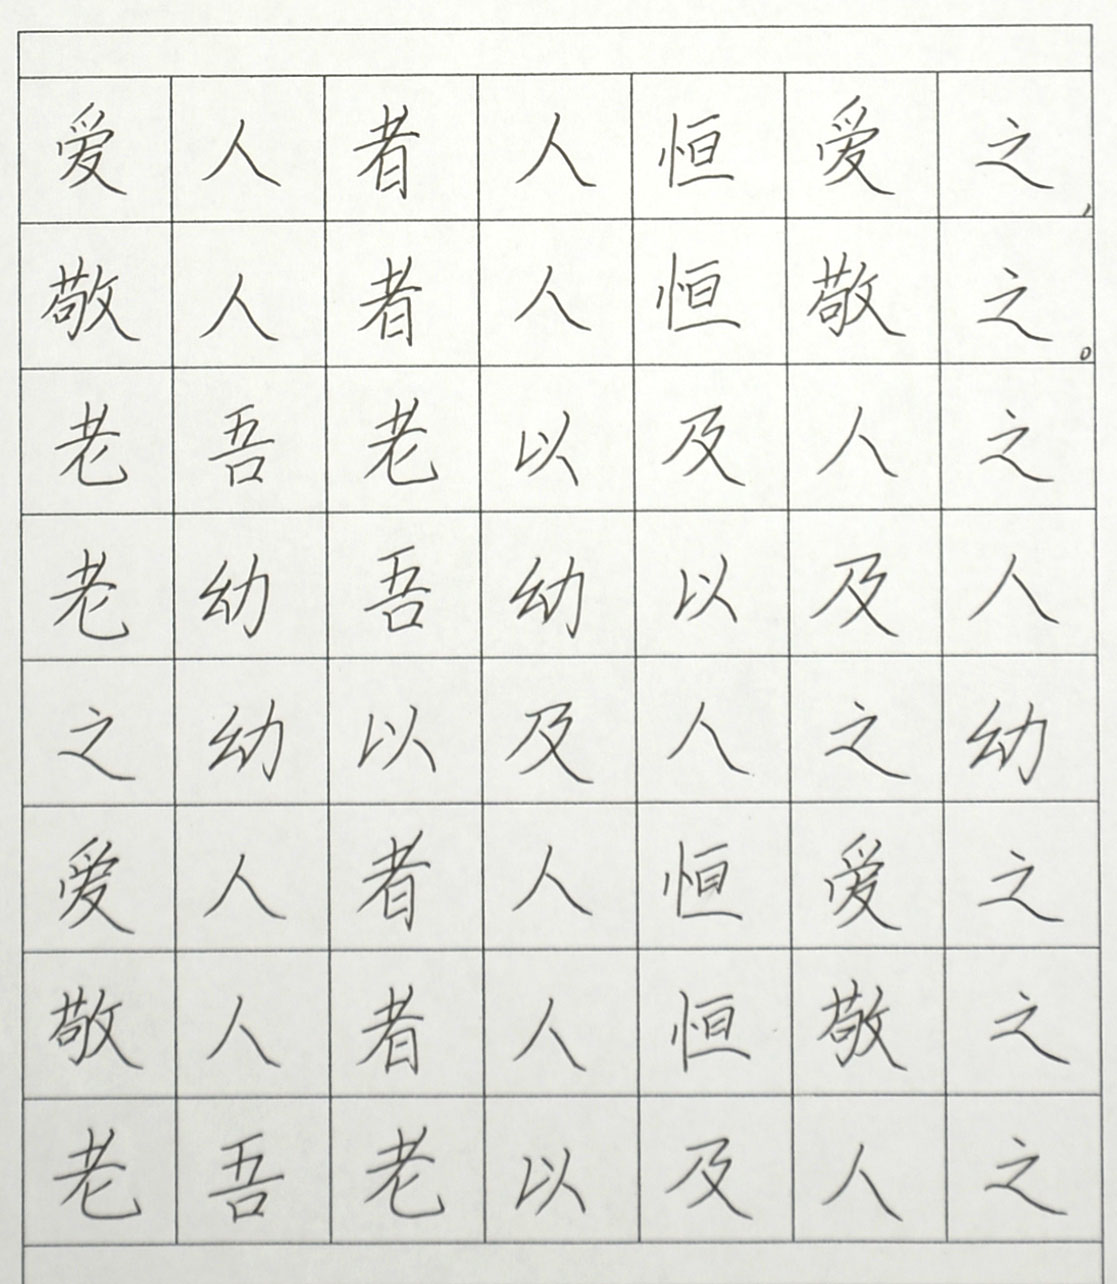 爱人者人恒爱之,
敬人者人恒敬之。
老吾老以及人之
老幼吾幼以及人
之幼以及人之幼
爱人者人恒爱之
敬人者人恒敬之
老吾老以及人之